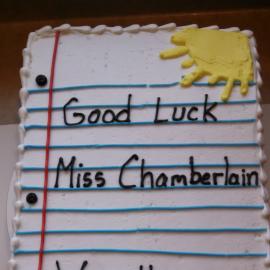 Good Luck
Miss Chamberlain